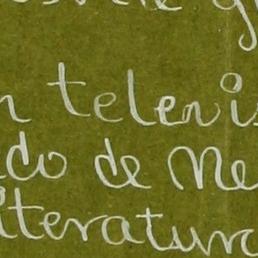 n televis
do de Me
literatura